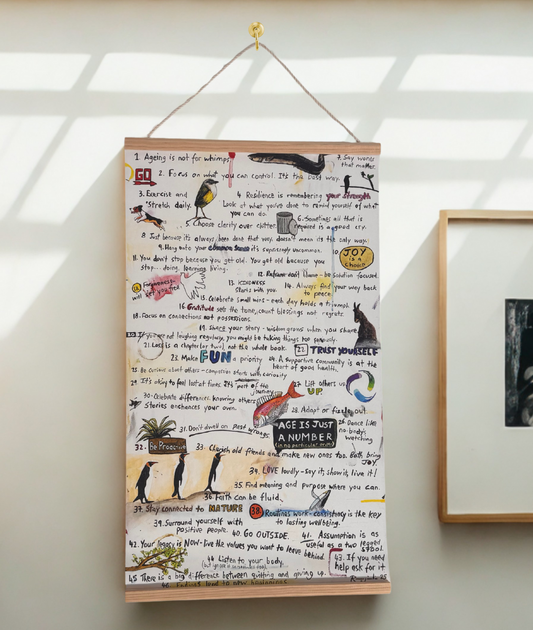 1. Ageing is not for whimps
7. Say words that matter.
GO
2. Focus on what you can control. It's the best way.
3. Exercise and stretch daily.
4. Resilience is remembering your strength
Look at what you've done to remind yourself of what you can do.
5. Choose clarity over clutter.
6. Sometimes all that is required is a good cry.
8. Just because it's always been done that way, doesn't mean its the only way.
9. Hang onto your common sense it's surprisingly uncommon.
10 JOY IS A CHOICE
11. You don't stop because you get old. You get old because you stop... doing, learning, living.
12. Reframe don't blame - be solution focused.
Forgiveness will set you free
13. KINDNESS Starts with you.
14. Always find your way back to peace.
15. Celebrate small wins - each day holds a triumph.
16 Gratitude sets the tone, count blessings not regrets.
18. Focus on connections not possessions.
19. Share your story - wisdom grows when you share.
20. If you are not laughing regularly, you might be taking things too seriously.
21. Loss is a chapter by two, not the whole book.
22. TRUST YOURSELF
23. Make FUN a priority
24. A supportive community is at the heart of good health.
25. Be curious about others - compassion starts with curiosity
29. It's okay to feel lost at times. It's part of the journey
27. Lift others UP.
30. Celebrate differences, knowing others stories enhances your own.
28. Adapt or fizzle out.
31. Don't dwell on past wrongs.
AGE IS JUST A NUMBER
(in no particular order)
26 Dance like no-body's watching
32. be Proactive
33. Cherish old friends and make new ones too. Both bring JOY.
34. LOVE loudly - say it, show it, live it!
35. Find meaning and purpose where you can.
36. Faith can be fluid.
37. Stay connected to NATURE
38 Routines work - consistency is the key to lasting wellbeing.
39. Surround yourself with positive people.
40. Go OUTSIDE.
41. Assumption is as useful as a two legged stool.
42. Your legacy is NOW - live the values you want to leave behind.
43. If you need help ask for it
44 Listen to your body.
45 There is a big difference between quitting and giving up.
46